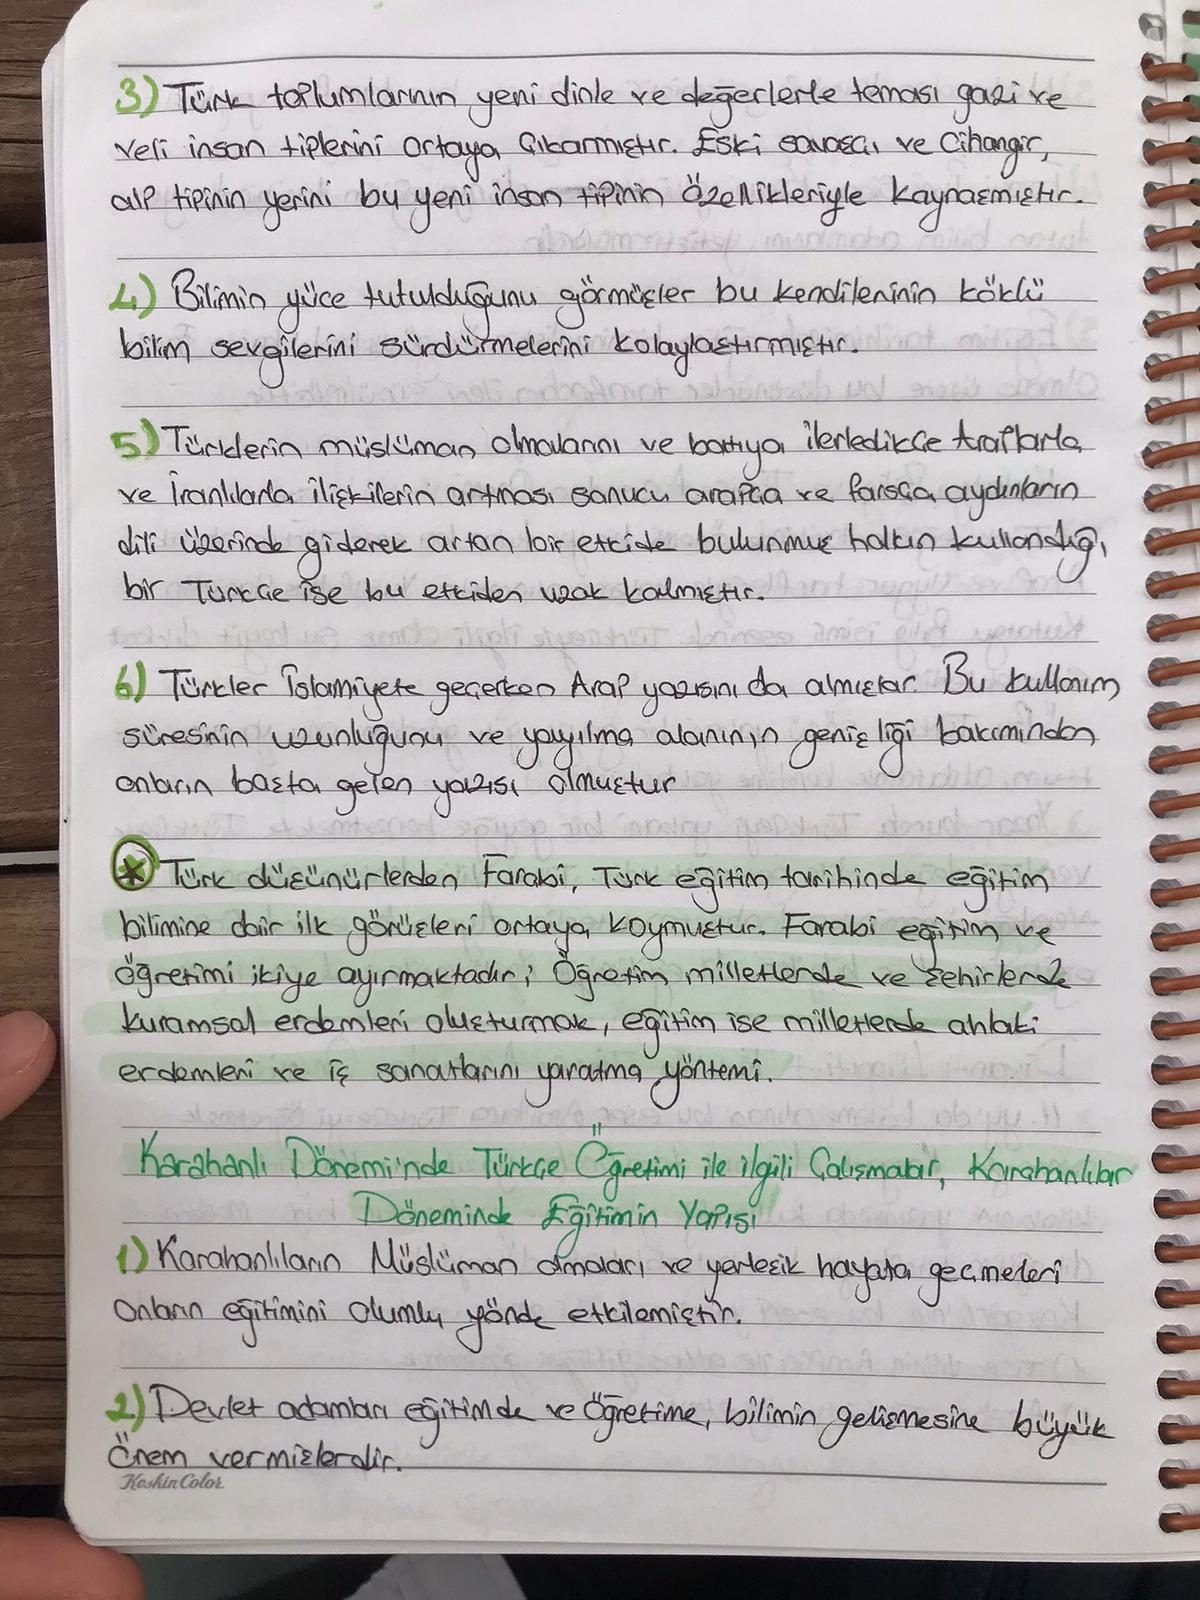 3) Türk toplumlarının yeni dinle ve değerlerle teması gazi ve
veli insan tiplerini ortaya çıkarmıştır. Eski savaşçı ve Cihangir,
alp tipinin yerini bu yeni insan tipinin özellikleriyle kaynaşmıştır.
4) Bilimin yüce tutulduğunu görmüşler bu kendilerinin köklü
bilim sevgilerini sürdürmelerini kolaylaştırmıştır.
5) Türklerin müslüman olmalarını ve batıya ilerledikçe Araplarla
ve İranlılarla ilişkilerin artması sonucu arapça ve farsça aydınların
dili üzerinde giderek artan bir etkide bulunmuş halkın kullandığı
bir Türkçe ise bu etkiden uzak kalmıştır.
6) Türkler İslamiyete geçerken Arap yazısını da almışlar. Bu kullanım
süresinin uzunluğunu ve yayılma alanının genişliği bakımından
onların başta gelen yazısı olmuştur
* Türk düşünürlerden Farabi, Türk eğitim tarihinde eğitim
bilimine dair ilk görüşleri ortaya koymuştur. Farabi eğitim ve
öğretimi ikiye ayırmaktadır; Öğretim milletlerde ve şehirlerde
kuramsal erdemleri oluşturmak, eğitim ise milletlerde ahlaki
erdemleri ve iş sanatlarını yaratma yöntemi.
Karahanlı Dönemi'nde Türkçe Öğretimi ile ilgili Çalışmalar, Karahanlılar
Döneminde Eğitimin Yapısı
1) Karahanlıların Müslüman olmaları ve yerleşik hayata geçmeleri
onların eğitimini olumlu yönde etkilemiştir.
2) Devlet adamları eğitimde ve öğretime, bilimin gelişmesine büyük
önem vermişlerdir.
KeskinColor